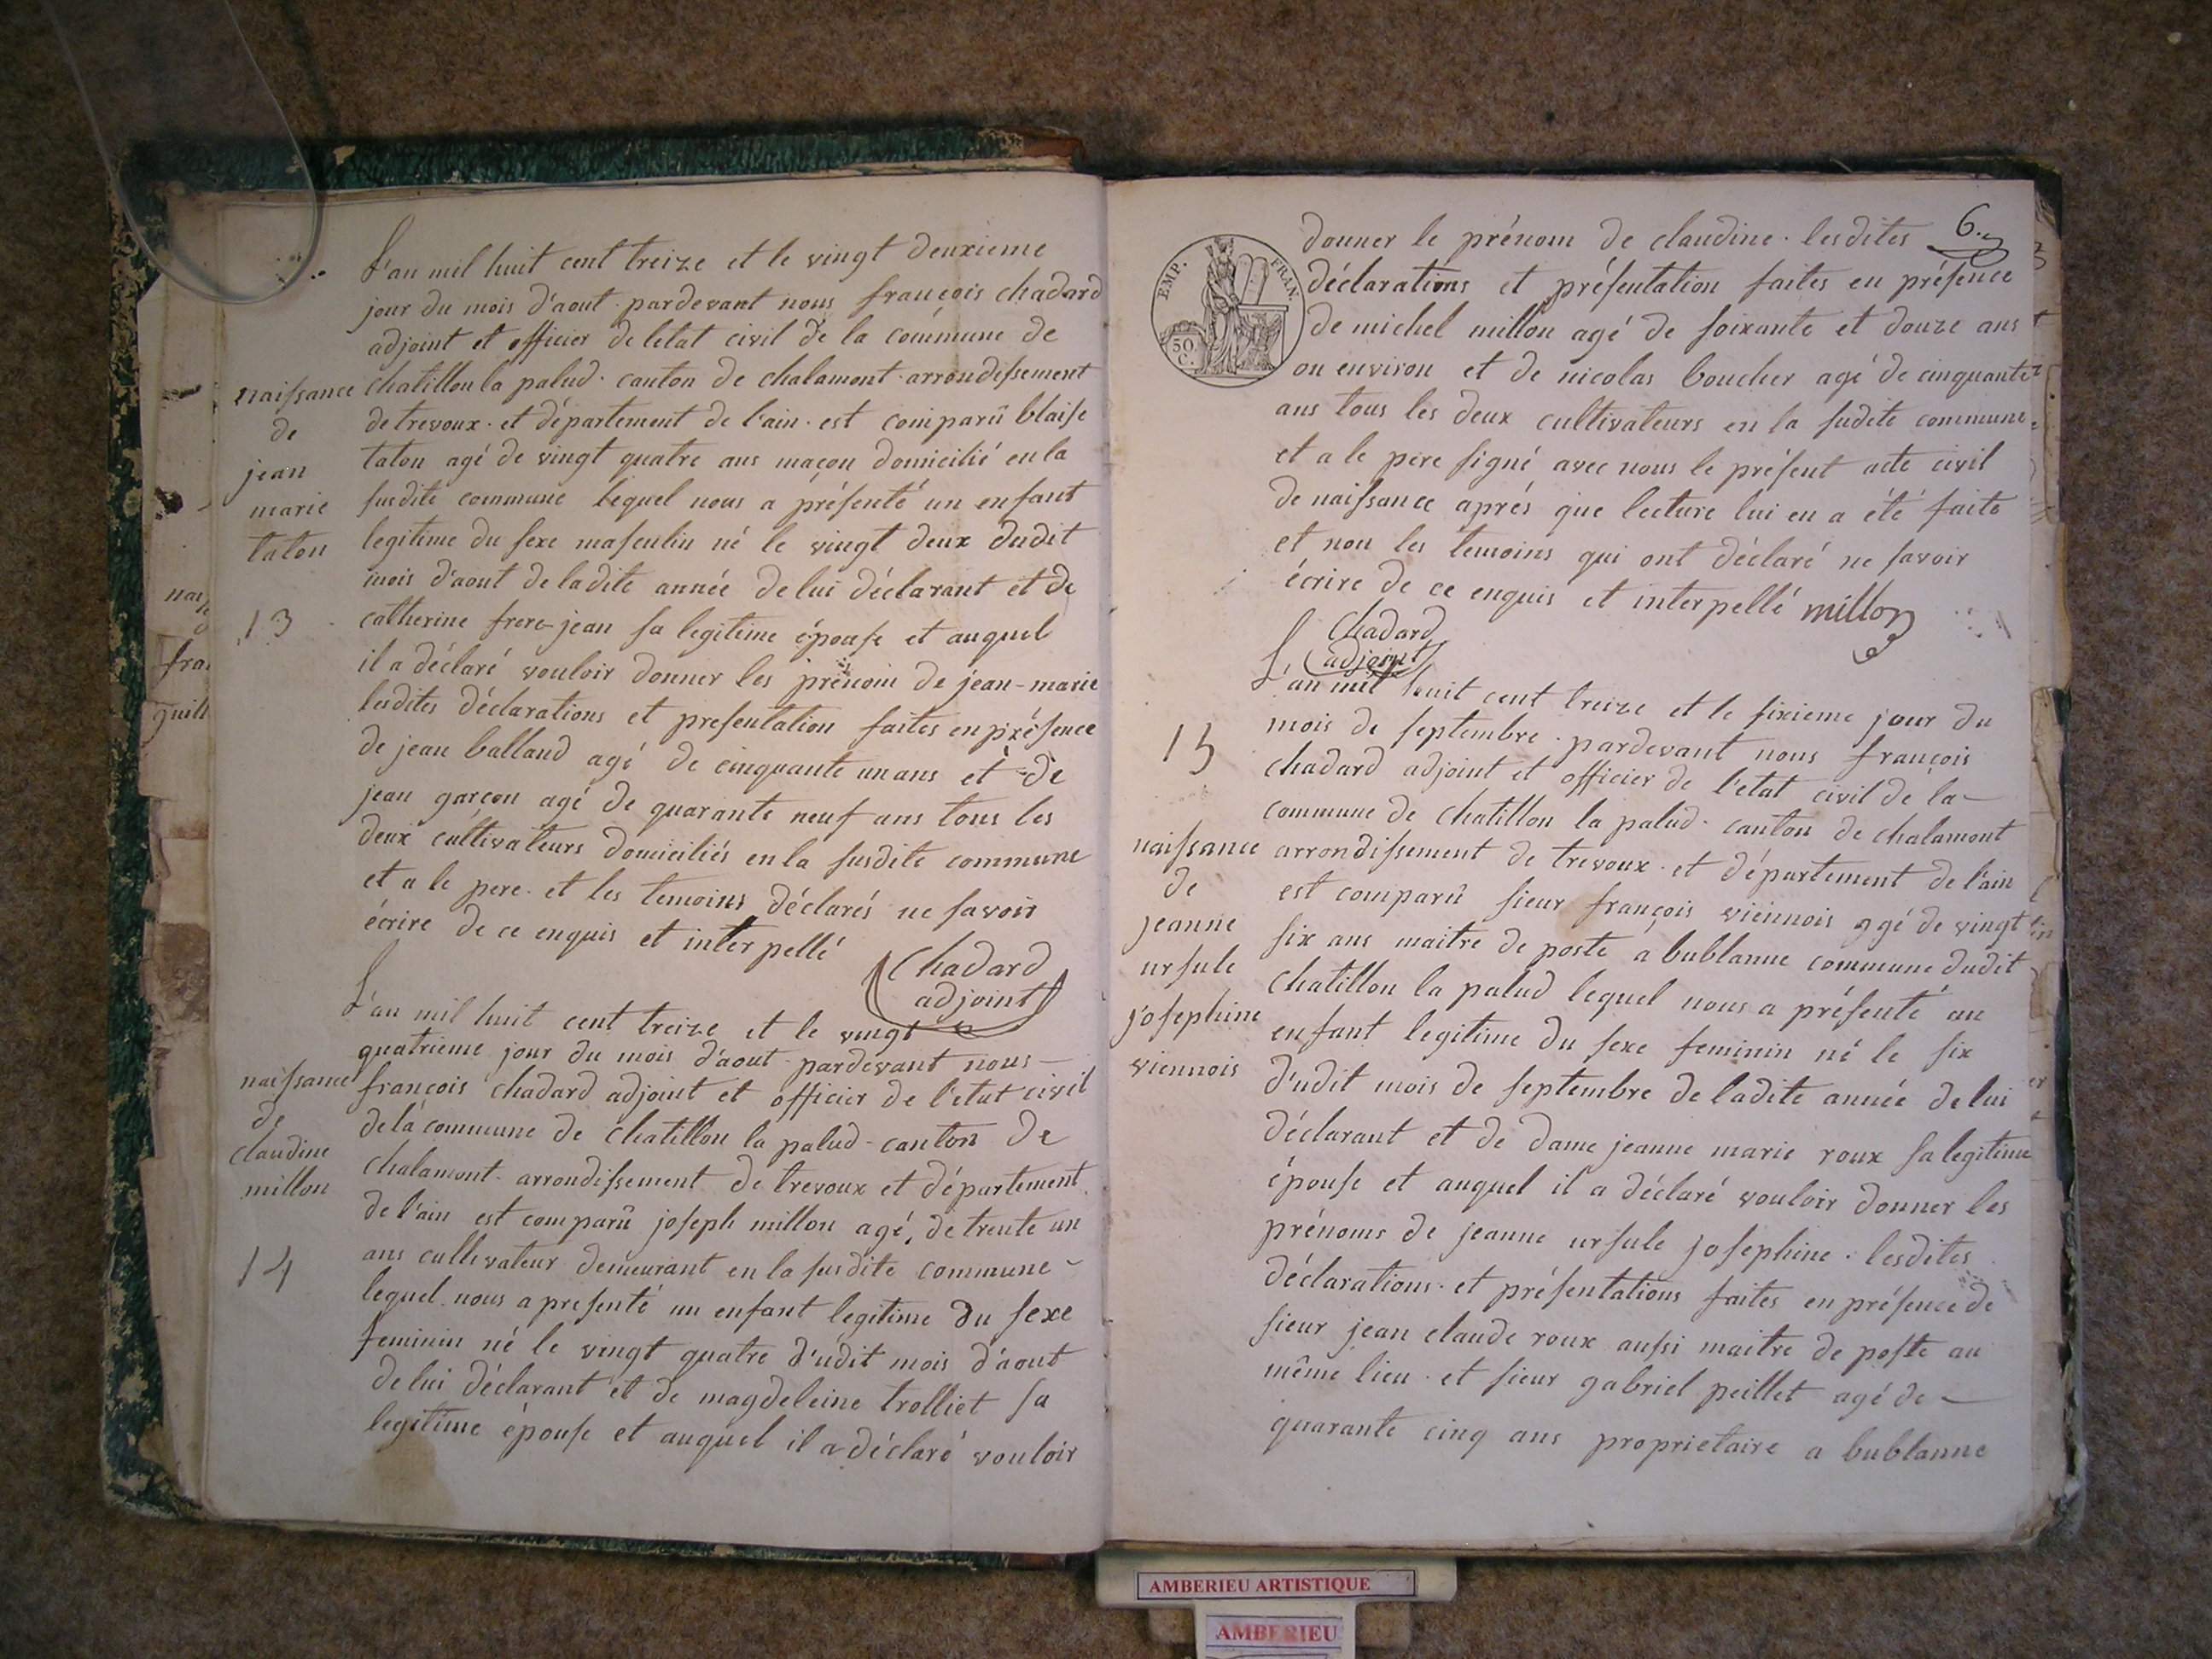 L'an mil huit cent treize et le vingt deuxieme
jour du mois d'aout pardevant nous françois chadard
adjoint et officier de letat civil de la commune de
chatillon la palud. canton de chalamont. arrondissement
de trevoux. et département de l'ain. est comparû blaise
talon agé de vingt quatre ans maçon domicilié en la
susdite commune lequel nous a présenté un enfant
legitime du sexe masculin né le vingt deux dudit
mois d'aout de ladite année de lui déclarant et de
catherine frere-jean sa legitime épouse et auquel
il a déclaré vouloir donner les prénom de jean-marie
lesdites déclarations et presentation faites en présence
de jean balland agé de cinquante un ans et de
jean garçon agé de quarante neuf ans tous les
deux cultivateurs domiciliés en la susdite commune
et a le pere. et les temoins déclarés ne savoir
écrire de ce enquis et interpellé
Chadard
adjoint
naissance
de
jean
marie
talon
13
L'an mil huit cent treize et le vingt
quatrieme jour du mois d'aout pardevant nous
françois chadard adjoint et officier de l'etat civil
de la commune de chatillon la palud - canton de
chalamont. arrondissement de trevoux et département
de l'ain est comparû joseph millon agé, de trente un
ans cultivateur demeurant en la susdite commune
lequel nous a presenté un enfant legitime du sexe
feminin né le vingt quatre d'udit mois d'aout
de lui déclarant et de magdeleine trolliet sa
legitime épouse et auquel il a déclaré vouloir
naissance
de
claudine
millon
14
nai
fra
guill
6.
EMP. FRAN.
50 C.
donner le prénom de claudine. lesdites
déclarations et présentation faites en présence
de michel millon agé de soixante et douze ans
ou environ et de nicolas boucher agé de cinquante
ans tous les deux cultivateurs en la sudite commune
et a le pere signé avec nous le présent acte civil
de naissance aprés que lecture lui en a été faite
et non les temoins qui ont déclaré ne savoir
écrire de ce enquis et interpellé millon
Chadard
adjoint
L'an mil huit cent treize et le sixieme jour du
mois de septembre. pardevant nous françois
chadard adjoint et officier de l'etat civil de la
commune de chatillon la palud. canton de chalamont
arrondissement de trevoux. et département de l'ain
est comparû sieur françois viennois agé de vingt
six ans maitre de poste a bublanne commune dudit
chatillon la palud lequel nous a présenté un
enfant legitime du sexe feminin né le six
d'udit mois de septembre de ladite année de lui
déclarant et de dame jeanne marie roux sa legitime
épouse et auquel il a déclaré vouloir donner les
prénoms de jeanne ursule josephine. lesdites
déclarations. et présentations faites en présence de
sieur jean claude roux aussi maitre de poste au
même lieu. et sieur gabriel peillet agé de
quarante cinq ans proprietaire a bublanne
15
naissance
de
jeanne
ursule
josephine
viennois
AMBERIEU ARTISTIQUE
AMBERIEU